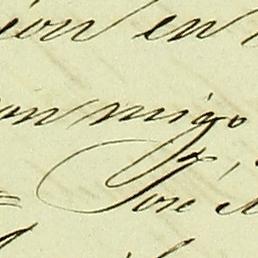 ion en
on migo
José